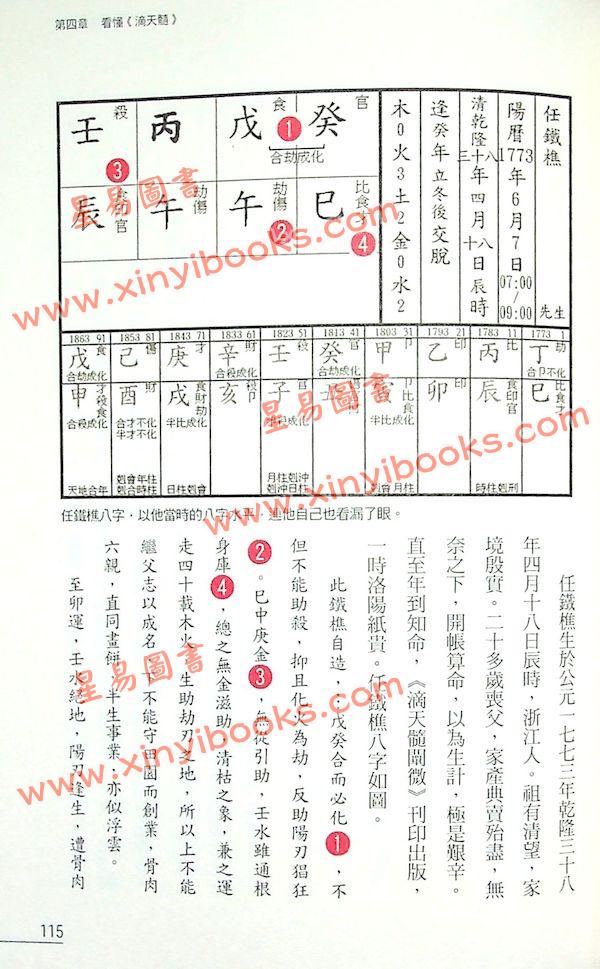 第四章 看懂《滴天髓》
任鐵樵 先生
陽曆1773年6月7日07:00/09:00
清乾隆三十八年四月十八日辰時
逢癸年立冬後交脫
木0火3土2金0水2
官 食 殺
癸 戊 丙 壬
1 合劫成化
3
巳 午 午 辰
比食才 劫傷 劫傷 食印官
4 2
1773 1 1783 11 1793 21 1803 31 1813 41 1823 51 1833 61 1843 71 1853 81 1863 91
劫 比 印 卩 官 殺 財 才 傷 食
丁 丙 乙 甲 癸 壬 辛 庚 己 戊
合卩不化 合劫成化 合殺成化 合劫成化
巳 辰 卯 寅 丑 子 亥 戌 酉 申
比食才 食印官 印 官 財 才殺食
半比成化 半殺成化 半比成化 合才不化 半才不化 合殺成化
任鐵樵八字，以他當時的八字水平，連他自己也看漏了眼。
任鐵樵生於公元一七七三年乾隆三十八
年四月十八日辰時，浙江人。祖有清望，家
境殷實。二十多歲喪父，家產典賣殆盡，無
奈之下，開帳算命，以為生計，極是艱辛。
直至年到知命，《滴天髓闡微》刊印出版，
一時洛陽紙貴。任鐵樵八字如圖。
此鐵樵自造，：戊癸合而必化1，不
但不能助殺，抑且化火為劫，反助陽刃猖狂
2。巳中庚金3，無從引助，壬水雖通根
身庫4，總之無金滋助，清枯之象，兼之運
走四十載木火，生助劫刃之地，所以上不能
繼父志以成名，下不能守田園而創業，骨肉
六親，直同畫餅，半生事業，亦似浮雲。
至卯運，壬水絕地，陽刃逢生，遭骨肉
115
星易圖書
www.xinyibooks.com
星易圖書
www.xinyibooks.com
星易圖書
www.xinyibooks.com